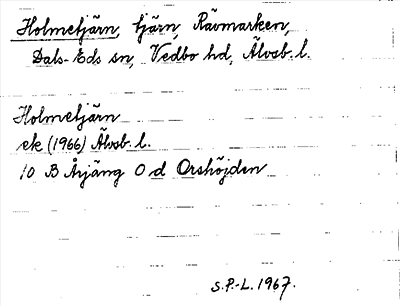 Holmetjärn, tjärn, Rävmarken,
Dals-Eds sn, Vedbo hd, Älvsb. l.
Holmetjärn
ek (1966) Älvsb. l.
10 B Årjäng O d Orshöjden
S.P.-L. 1967.